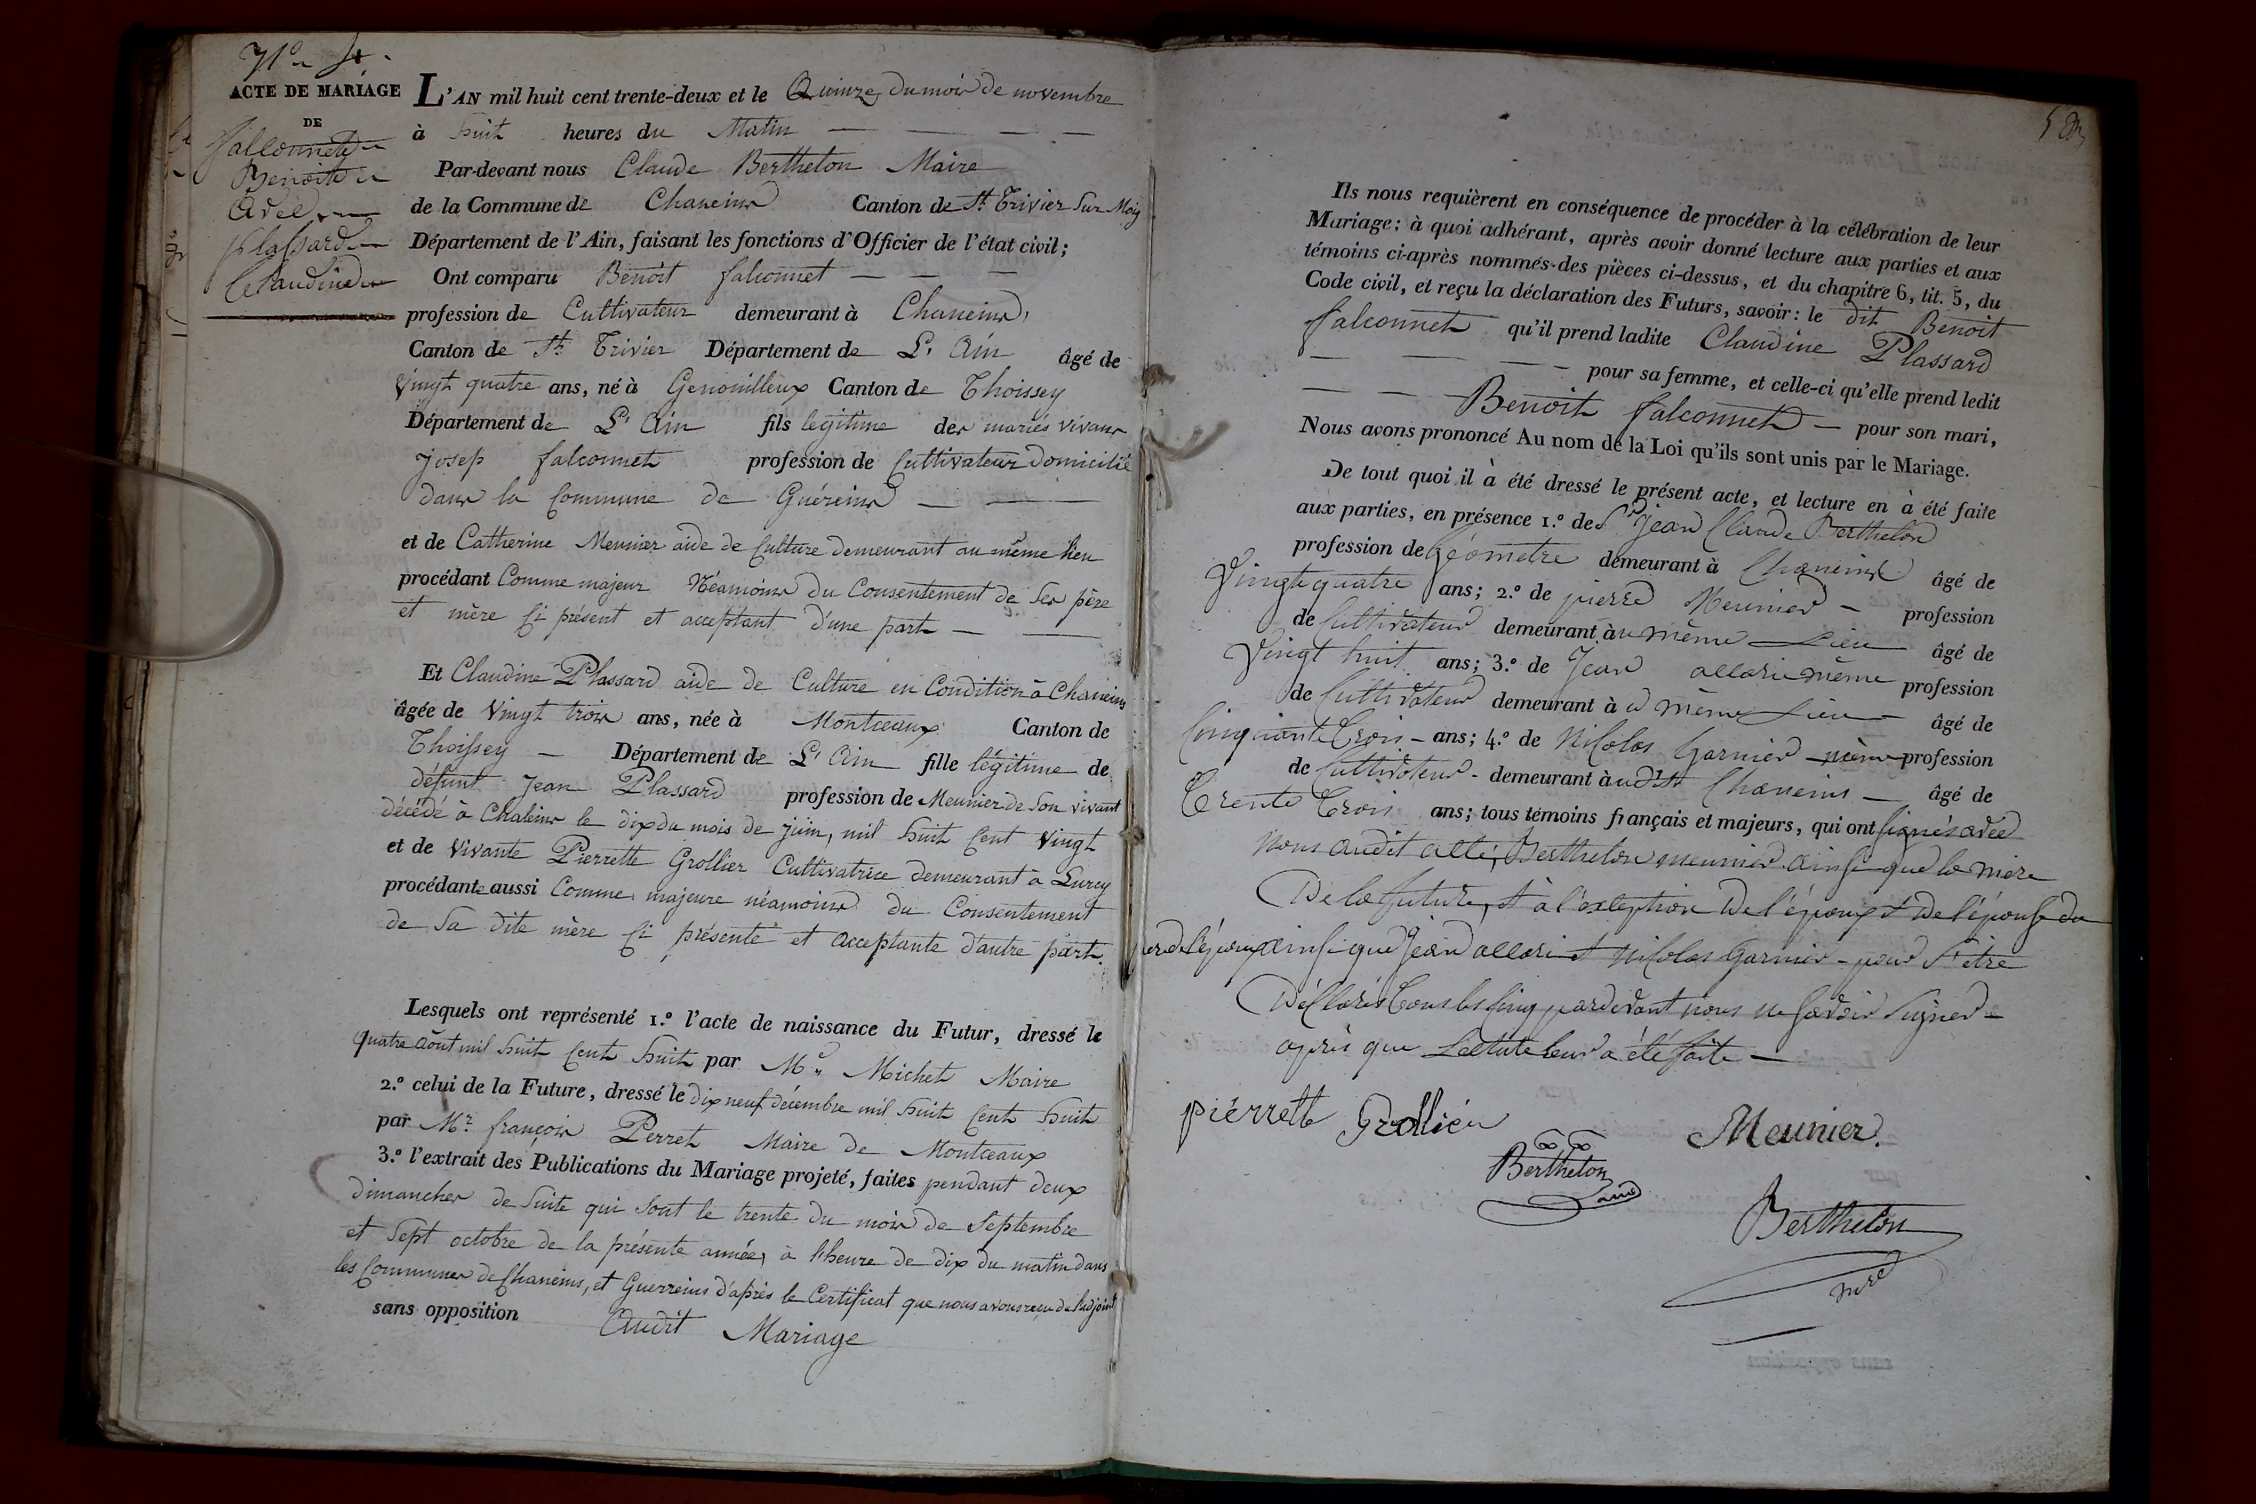 ACTE DE MARIAGE
DE
falconnet
Benoit
avec
plassard
Claudine
L'AN mil huit cent trente-deux et le Quinze du mois de novembre
à huit heures du Matin
Par-devant nous Claude Berthelon Maire
de la Commune de Chaneins Canton de St Trivier Sur Moig
Département de l'Ain, faisant les fonctions d'Officier de l'état civil;
Ont comparu Benoit falconnet
profession de Cultivateur demeurant à Chaneins,
Canton de St Trivier Département de L'Ain âgé de
Vingt quatre ans, né à Genouilleux Canton de Thoissey
Département de L'Ain fils légitime des mariés vivans
Josep falconnet profession de Cultivateur Domicilié
dans la Commune de Guéreins
et de Catherine Meunier aide de Culture demeurant au même lieu
procédant Comme majeur Néamoins du Consentement de Ses père
et mère Ci présent et acceptant d'une part
Et Claudine Plassard aide de Culture en Condition à Chaneins
âgée de Vingt trois ans, née à Montceaux Canton de
Thoissey Département de L'Ain fille légitime de
défunt Jean Plassard profession de Meunier de Son vivant
décédé à Chaleins le dix du mois de juin, mil huit Cent Vingt
et de Vivante Pierrette Grollier Cultivatrice demeurant à Lurcy
procédante aussi Comme majeure néamoins du Consentement
de Sa dite mère Ci présente et acceptante d'autre part.
Lesquels ont représenté 1.º l'acte de naissance du Futur, dressé le
quatre août mil huit Cent huit par Mr Michet Maire
2.º celui de la Future, dressé le dix neuf décembre mil huit Cent huit
par Mr françois Perret Maire de Montceaux
3.º l'extrait des Publications du Mariage projeté, faites pendant deux
dimanches de Suite qui Sont le trente du mois de Septembre
et Sept octobre de la présente année, à l'heure de dix du matin dans
les Communes de Chaneins, et Guerreins d'après le Certificat que nous avons reçu de l'adjoint
sans opposition Audit Mariage
Ils nous requièrent en conséquence de procéder à la célébration de leur
Mariage; à quoi adhérant, après avoir donné lecture aux parties et aux
témoins ci-après nommés des pièces ci-dessus, et du chapitre 6, tit. 5, du
Code civil, et reçu la déclaration des Futurs, savoir: le dit Benoit
falconnet qu'il prend ladite Claudine Plassard
pour sa femme, et celle-ci qu'elle prend ledit
Benoit falconnet pour son mari,
Nous avons prononcé Au nom de la Loi qu'ils sont unis par le Mariage.
De tout quoi il à été dressé le présent acte, et lecture en à été faite
aux parties, en présence 1.º de Sr Jean Claude Berthelon
profession de Géometre demeurant à Chaneins âgé de
Vingt quatre ans; 2.º de pierre Meunier profession
de Cultivateur demeurant au même Lieu âgé de
Vingt huit ans; 3.º de Jean allari même profession
de Cultivateur demeurant à u même Lieu âgé de
Cinquante Trois ans; 4.º de Nicolas Garnier même profession
de Cultivateur demeurant à udit Chaneins âgé de
Trente Trois ans; tous témoins français et majeurs, qui ont signés avec
Nous audit acte, Berthelon meunier ainsi que la mère
De la future, et à l'exception De l'époux et De l'épouse du
ere de l'époux ainsi que Jean allari et Nicolas Garnier pour s'être
Déclarés Tous les Cinq pardevant nous ne Savoir Signer
après que Lecture leur a été faite
pièrrette Grolliér
Meunier.
Berthelon
Berthelon
mre